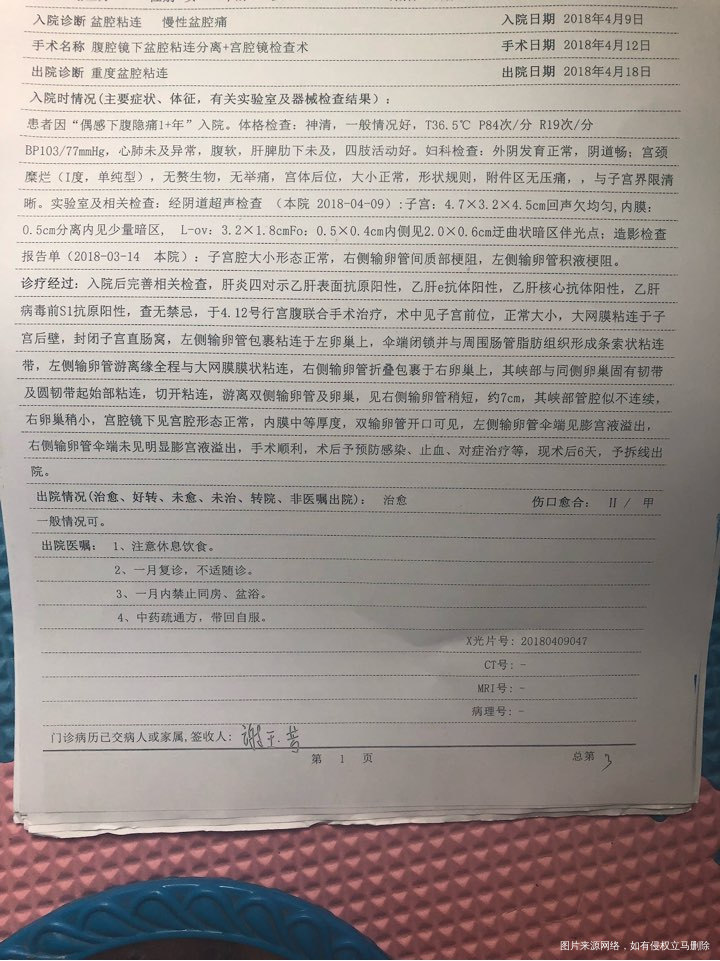 入院诊断 盆腔粘连 慢性盆腔痛 入院日期 2018年4月9日
手术名称 腹腔镜下盆腔粘连分离+宫腔镜检查术 手术日期 2018年4月12日
出院诊断 重度盆腔粘连 出院日期 2018年4月18日
入院时情况(主要症状、体征，有关实验室及器械检查结果)：
患者因“偶感下腹隐痛1+年”入院。体格检查：神清，一般情况好，T36.5℃ P84次/分 R19次/分
BP103/77mmHg，心肺未及异常，腹软，肝脾肋下未及，四肢活动好。妇科检查：外阴发育正常，阴道畅；宫颈
糜烂（I度，单纯型），无赘生物，无举痛，宫体后位，大小正常，形状规则，附件区无压痛，，与子宫界限清
晰。实验室及相关检查：经阴道超声检查 （本院 2018-04-09）:子宫：4.7×3.2×4.5cm回声欠均匀,内膜：
0.5cm分离内见少量暗区， L-ov：3.2×1.8cmFo：0.5×0.4cm内侧见2.0×0.6cm迂曲状暗区伴光点；造影检查
报告单（2018-03-14 本院）：子宫腔大小形态正常，右侧输卵管间质部梗阻，左侧输卵管积液梗阻。
诊疗经过：入院后完善相关检查，肝炎四对示乙肝表面抗原阳性，乙肝e抗体阳性，乙肝核心抗体阳性，乙肝
病毒前S1抗原阳性，查无禁忌，于4.12号行宫腹联合手术治疗，术中见子宫前位，正常大小，大网膜粘连于子
宫后壁，封闭子宫直肠窝，左侧输卵管包裹粘连于左卵巢上，伞端闭锁并与周围肠管脂肪组织形成条索状粘连
带，左侧输卵管游离缘全程与大网膜膜状粘连，右侧输卵管折叠包裹于右卵巢上，其峡部与同侧卵巢固有韧带
及圆韧带起始部粘连，切开粘连，游离双侧输卵管及卵巢，见右侧输卵管稍短，约7cm，其峡部管腔似不连续，
右卵巢稍小，宫腔镜下见宫腔形态正常，内膜中等厚度，双输卵管开口可见，左侧输卵管伞端见膨宫液溢出，
右侧输卵管伞端未见明显膨宫液溢出，手术顺利，术后予预防感染、止血、对症治疗等，现术后6天，予拆线出
院。
出院情况(治愈、好转、未愈、未治、转院、非医嘱出院)： 治愈 伤口愈合： II / 甲
一般情况可。
出院医嘱： 1、注意休息饮食。
2、一月复诊，不适随诊。
3、一月内禁止同房、盆浴。
4、中药疏通方，带回自服。
X光片号：20180409047
CT号：-
MRI号：-
病理号：-
门诊病历已交病人或家属,签收人：
第 1 页 总第 3
图片来源网络，如有侵权立马删除